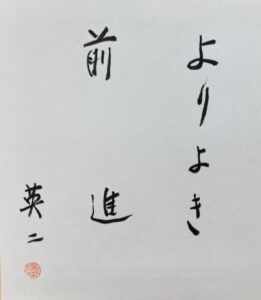 よりよき
前進
英二